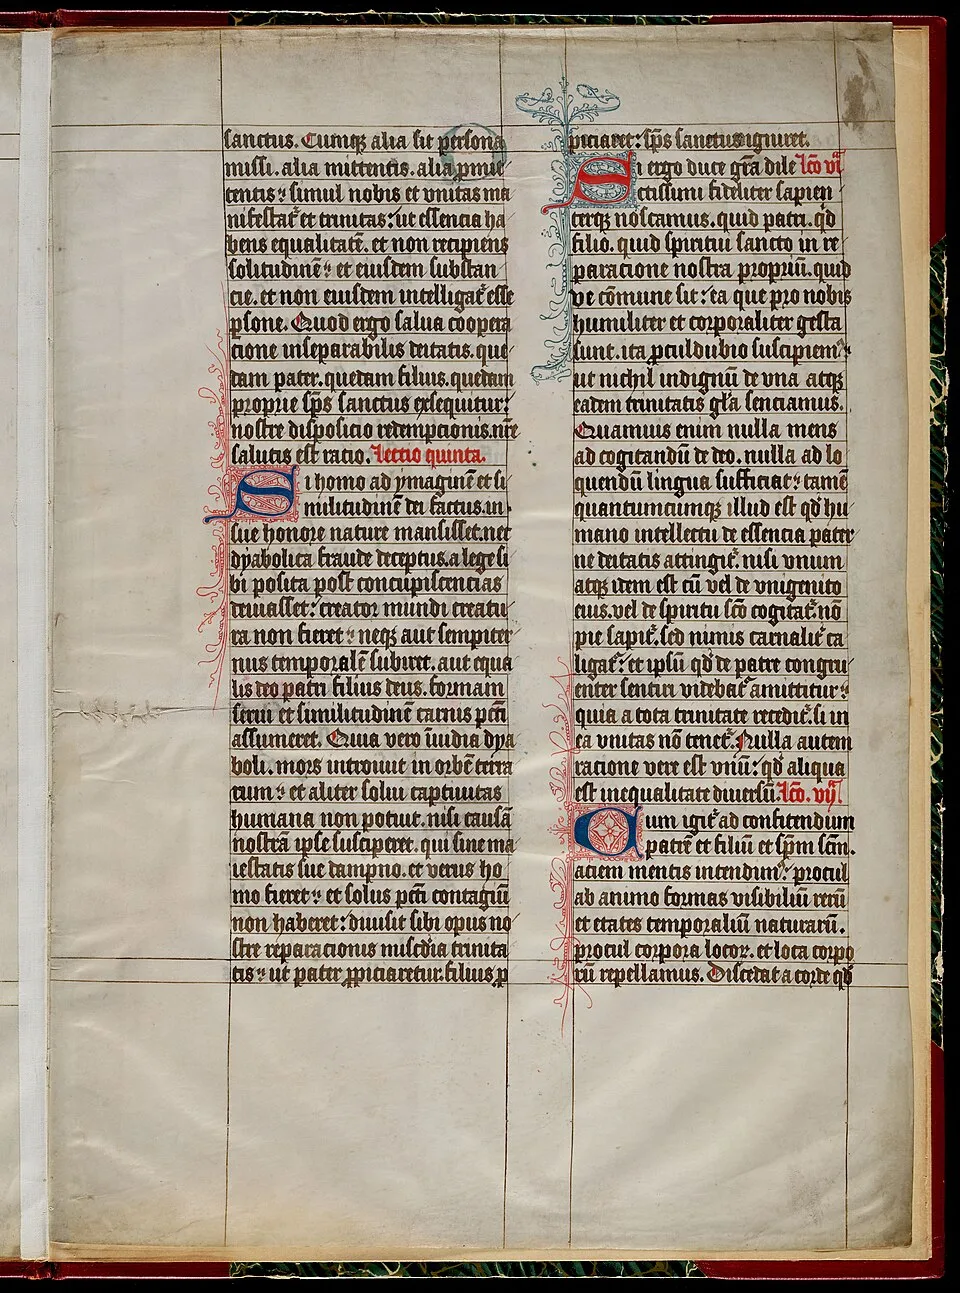 sanctus. Cumqꝫ alia sit persona
missi. alia mittentis. alia ꝓmit
tentis: simul nobis et vnitas ma
nifestat᷑ et trinitas: ut essencia ha
bens equalitatē. et non recipiens
solitudinē: et eiusdem substan
cie. et non eiusdem intelligat᷑ esse
ꝑsone. Quod ergo salua coopera
cione inseparabilis deitatis. que
dam pater. quedam filius. quedam
proprie sp̄s sanctus exsequitur:
nostre disposicio redemptionis. nr̄e
salutis est ratio. lectio quinta.
Si homo ad ymaginē et si
militudinē dei factus. in
sue honore nature mansisset. nec
dyabolica fraude deceptus. a lege si
bi posita post concupiscencias
deuiasset: creator mundi creatu
ra non fieret: neqꝫ aut sempiter
nus temporalē subiret. aut equa
lis deo patri filius deus. formam
serui et similitudinē carnis pctī
assumeret. Quia vero īuidia dya
boli. mors introiuit in orbē terra
rum: et aliter solui captiuitas
humana non potuit. nisi causā
nostrā ipse susciperet. qui sine ma
iestatis sue dampno. et verus ho
mo fieret: et solus pctī contagiū
non haberet: diuisit sibi opus no
stre reparacionis misc̄dia trinita
tis: ut pater ꝓpiciaretur. filius ꝓ
piciaret: sp̄s sanctus igniret.
Si ergo duce gr̄a dile lc̄o vi
ctissimi fideliter sapien
terqꝫ noscamus. quid patri. qd̄
filio. quid spiritui sancto in re
paracione nostra propriū. quid
ve cōmune sit: ea que pro nobis
humiliter et corporaliter gesta
sunt. ita ꝓculdubio suscipiem᷒:
ut nichil indignū de vna atqꝫ
eadem trinitatis gl̄a senciamus.
Quamuis enim nulla mens
ad cogitandū de deo. nulla ad lo
quendū lingua sufficiat: tamē
quantumcumqꝫ illud est qd̄ hu
mano intellectu de essencia pater
ne deitatis attingit᷑. nisi vnum
atqꝫ idem est cū vel de vnigenito
eius. vel de spiritu scō cogitat᷑. nō
pie sapit᷑. sed nimis carnalit᷑ ca
ligat᷑: et ipsū qd̄ de patre congru
enter sentiri videbat᷑ amittitur:
quia a tota trinitate recedit᷑. si in
ea vnitas nō tenet᷑. Nulla autem
racione vere est vnū: qd̄ aliqua
est inequalitate diuersū. lc̄o. vij.
Cum igit᷑ ad confitendum
patrē et filiū et sp̄m scm̄.
aciem mentis intendim᷒: procul
ab animo formas visibiliū rerū
et etates temporaliū naturarū.
procul corpora locoꝝ. et loca corpo
rū repellamus. Discedat a corde qd̄